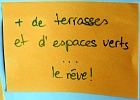 + de terrasses
et d'espaces verts
...
le rêve!